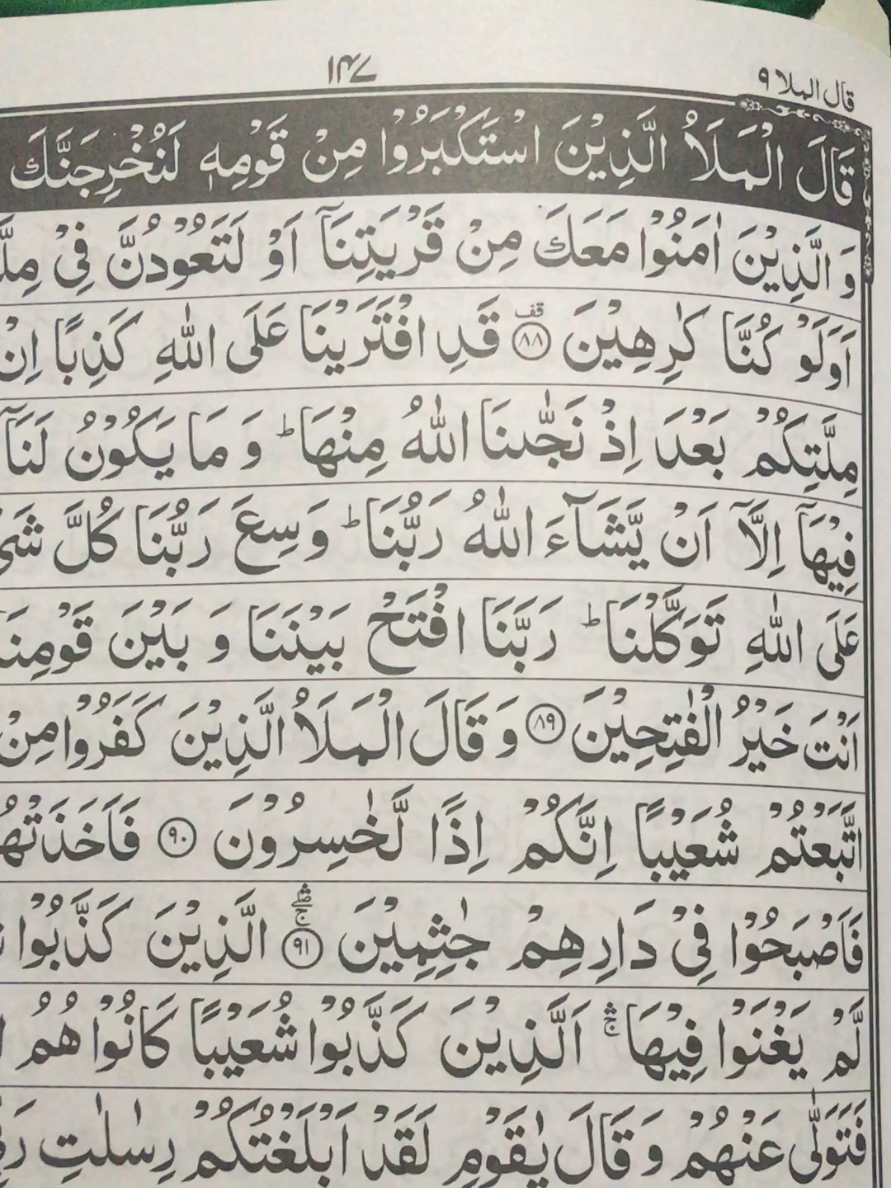 قال الملا ٩
١٤٧
قَالَ الْمَلَاُ الَّذِيْنَ اسْتَكْبَرُوْا مِنْ قَوْمِهٖ لَنُخْرِجَنَّكَ
وَ الَّذِيْنَ اٰمَنُوْا مَعَكَ مِنْ قَرْيَتِنَاۤ اَوْ لَتَعُوْدُنَّ فِيْ
اَوَلَوْ كُنَّا كٰرِهِيْنَ ﴿۸۸﴾ قف قَدِ افْتَرَيْنَا عَلَى اللّٰهِ كَذِبًا اِنْ
مِلَّتِكُمْ بَعْدَ اِذْ نَجّٰىنَا اللّٰهُ مِنْهَا ؕ وَ مَا يَكُوْنُ لَنَاۤ
فِيْهَاۤ اِلَّاۤ اَنْ يَّشَآءَ اللّٰهُ رَبُّنَا ؕ وَسِعَ رَبُّنَا كُلَّ
عَلَى اللّٰهِ تَوَكَّلْنَا ؕ رَبَّنَا افْتَحْ بَيْنَنَا وَ بَيْنَ قَوْمِنَا
اَنْتَ خَيْرُ الْفٰتِحِيْنَ ﴿۸۹﴾ وَ قَالَ الْمَلَاُ الَّذِيْنَ كَفَرُوْا مِنْ
اتَّبَعْتُمْ شُعَيْبًا اِنَّكُمْ اِذًا لَّخٰسِرُوْنَ ﴿۹۰﴾
فَاَصْبَحُوْا فِيْ دَارِهِمْ جٰثِمِيْنَ ﴿۹۱﴾ الَّذِيْنَ كَذَّبُوْا
لَّمْ يَغْنَوْا فِيْهَا ۛۚ اَلَّذِيْنَ كَذَّبُوْا شُعَيْبًا كَانُوْا هُمُ
فَتَوَلّٰى عَنْهُمْ وَ قَالَ يٰقَوْمِ لَقَدْ اَبْلَغْتُكُمْ رِسٰلٰتِ